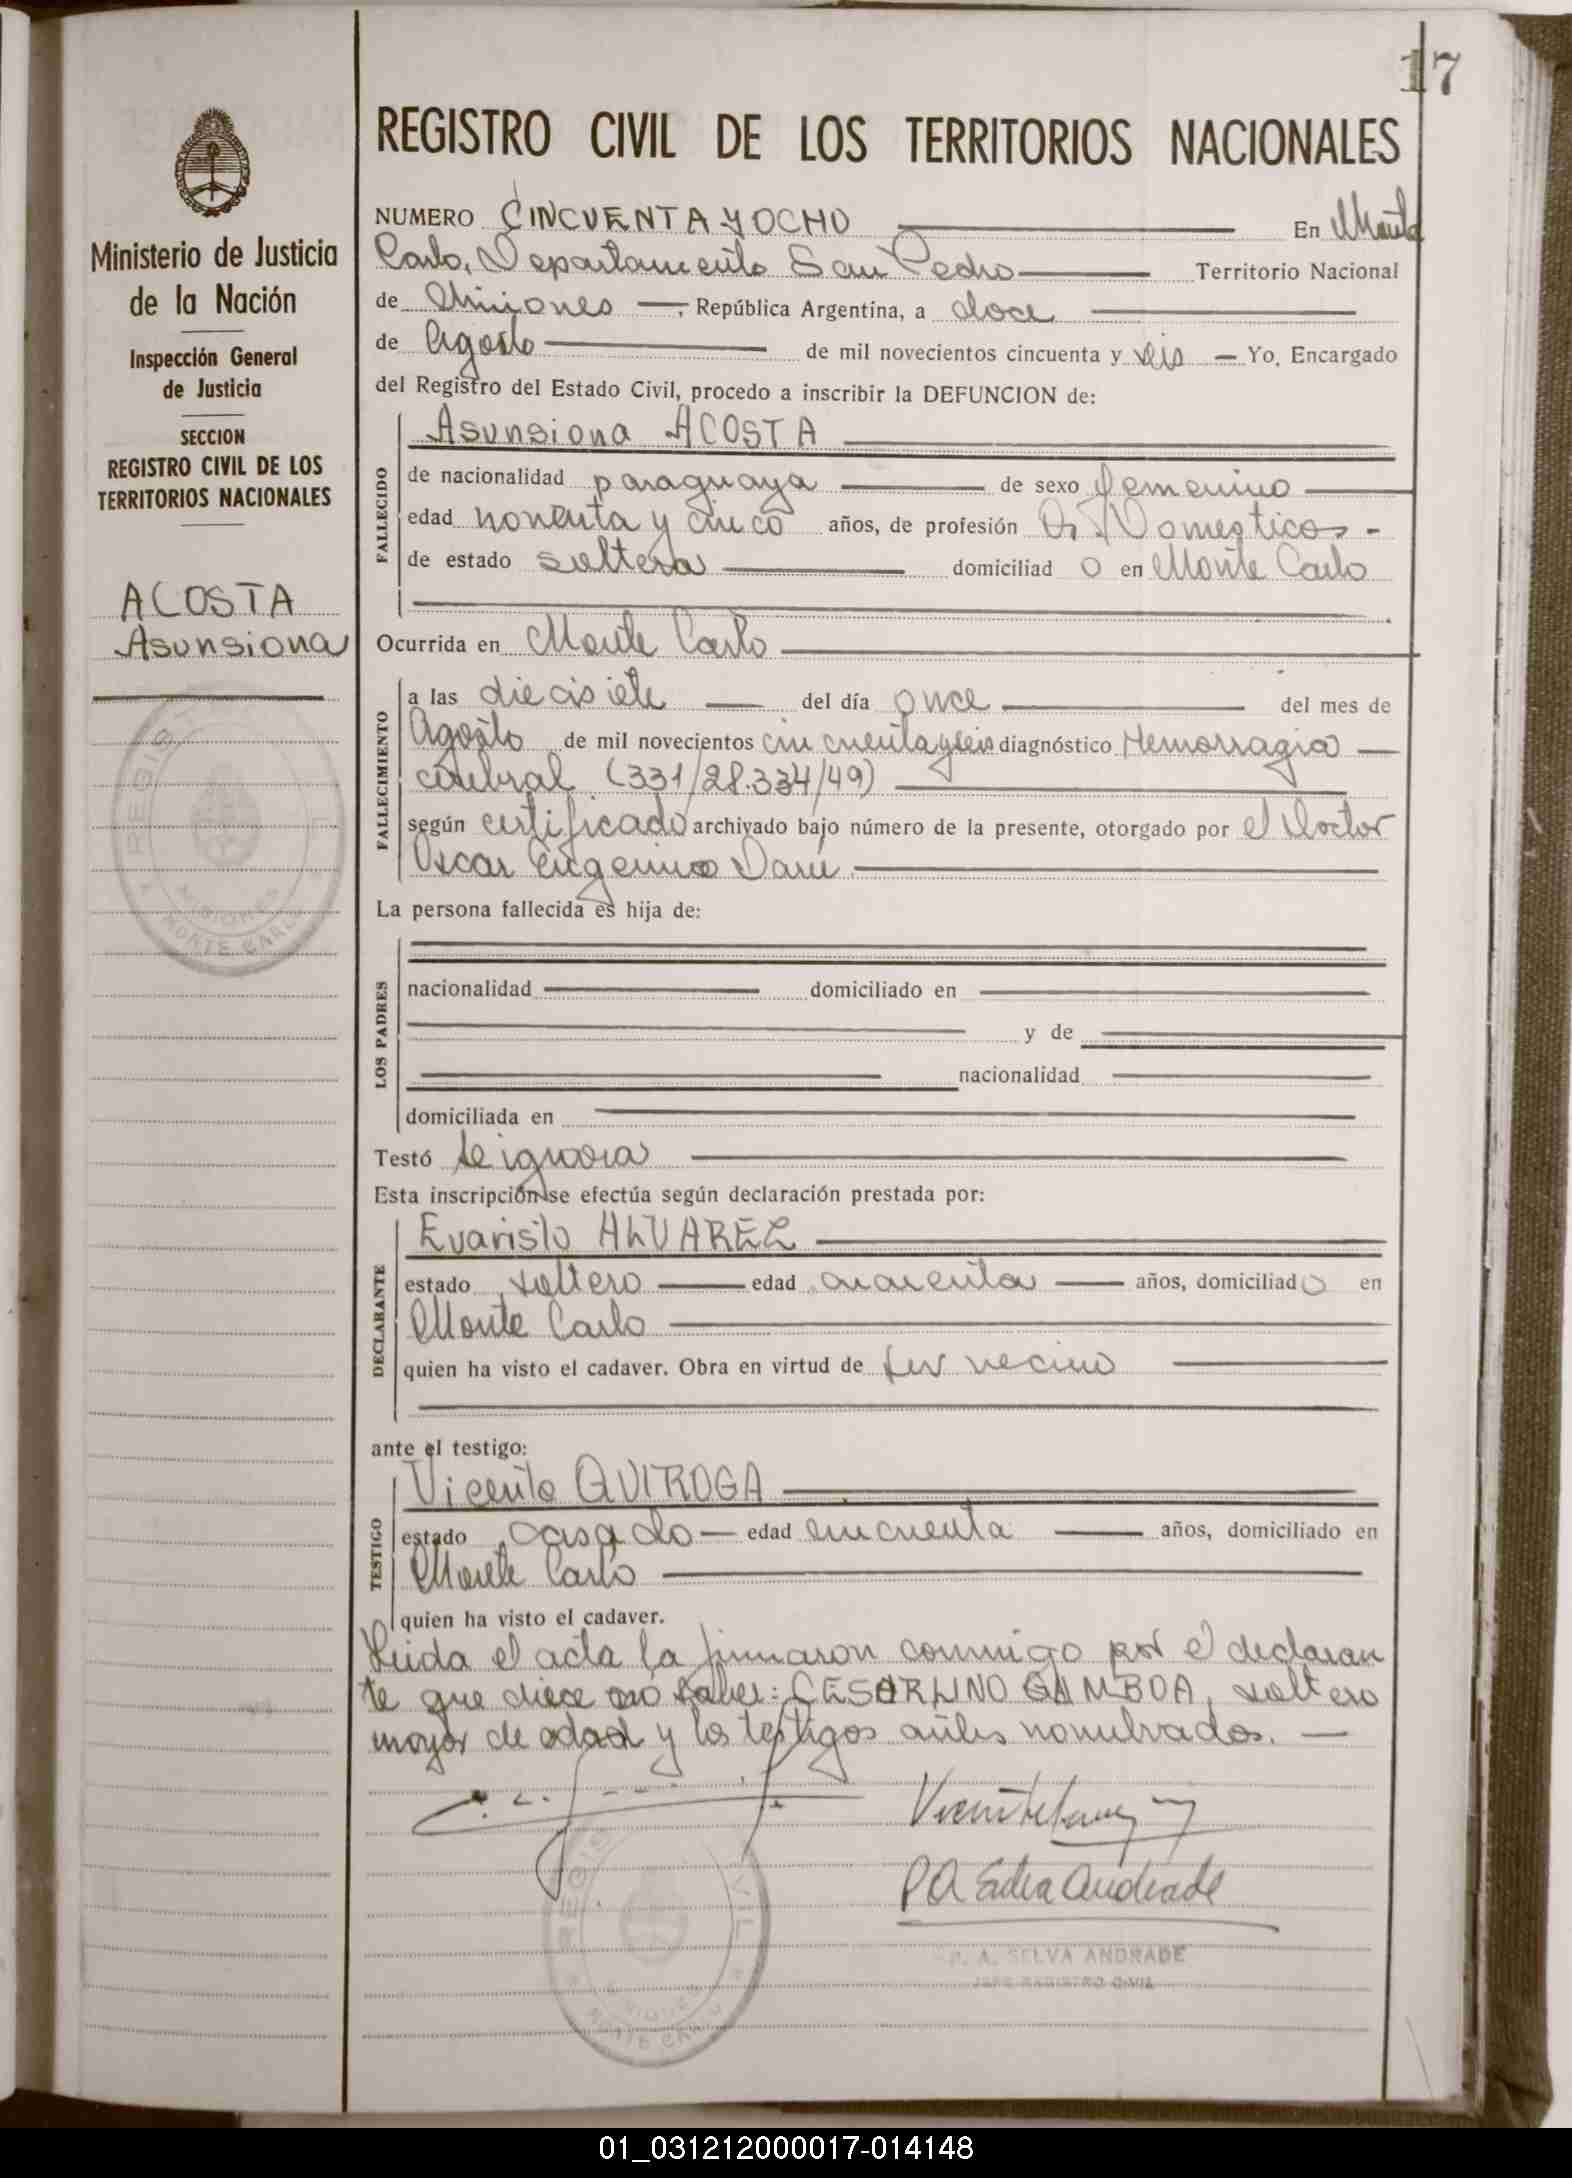 17
REGISTRO CIVIL DE LOS TERRITORIOS NACIONALES
Ministerio de Justicia
de la Nación
Inspección General
de Justicia
SECCION
REGISTRO CIVIL DE LOS
TERRITORIOS NACIONALES
ACOSTA
Asunsiona
NUMERO CINCUENTA Y OCHO En Monte
Carlo, Departamento San Pedro Territorio Nacional
de Misiones, República Argentina, a doce
de Agosto de mil novecientos cincuenta y seis Yo, Encargado
del Registro del Estado Civil, procedo a inscribir la DEFUNCION de:
FALLECIDO
Asunsiona ACOSTA
de nacionalidad paraguaya de sexo femenino
edad noventa y cinco años, de profesión Q. Domesticos -
de estado soltera domiciliad o en Monte Carlo
Ocurrida en Monte Carlo
FALLECIMIENTO
a las diecisiete del día once del mes de
Agosto de mil novecientos cincuenta y seis diagnóstico Hemorragia
cerebral (331/28.334/49)
según certificado archivado bajo número de la presente, otorgado por el Doctor
Oscar Eugenio Daru
La persona fallecida es hija de:
LOS PADRES
nacionalidad domiciliado en
y de
nacionalidad
domiciliada en
Testó se ignora
Esta inscripción se efectúa según declaración prestada por:
DECLARANTE
Evaristo ALVAREZ
estado soltero edad cuarenta años, domiciliado en
Monte Carlo
quien ha visto el cadaver. Obra en virtud de ser vecino
ante el testigo:
TESTIGO
Vicente QUIROGA
estado casado edad cincuenta años, domiciliado en
Monte Carlo
quien ha visto el cadaver.
Leida el acta la firmaron conmigo por el declaran
te que diece no saber: CESARLINO GAMBOA, soltero
mayor de edad y los testigos antes nombrados.
P A Selva Andrade
P. A. SELVA ANDRADE
JEFE REGISTRO CIVIL
REGISTRO CIVIL
MISIONES
MONTE CARLO
01_031212000017-014148